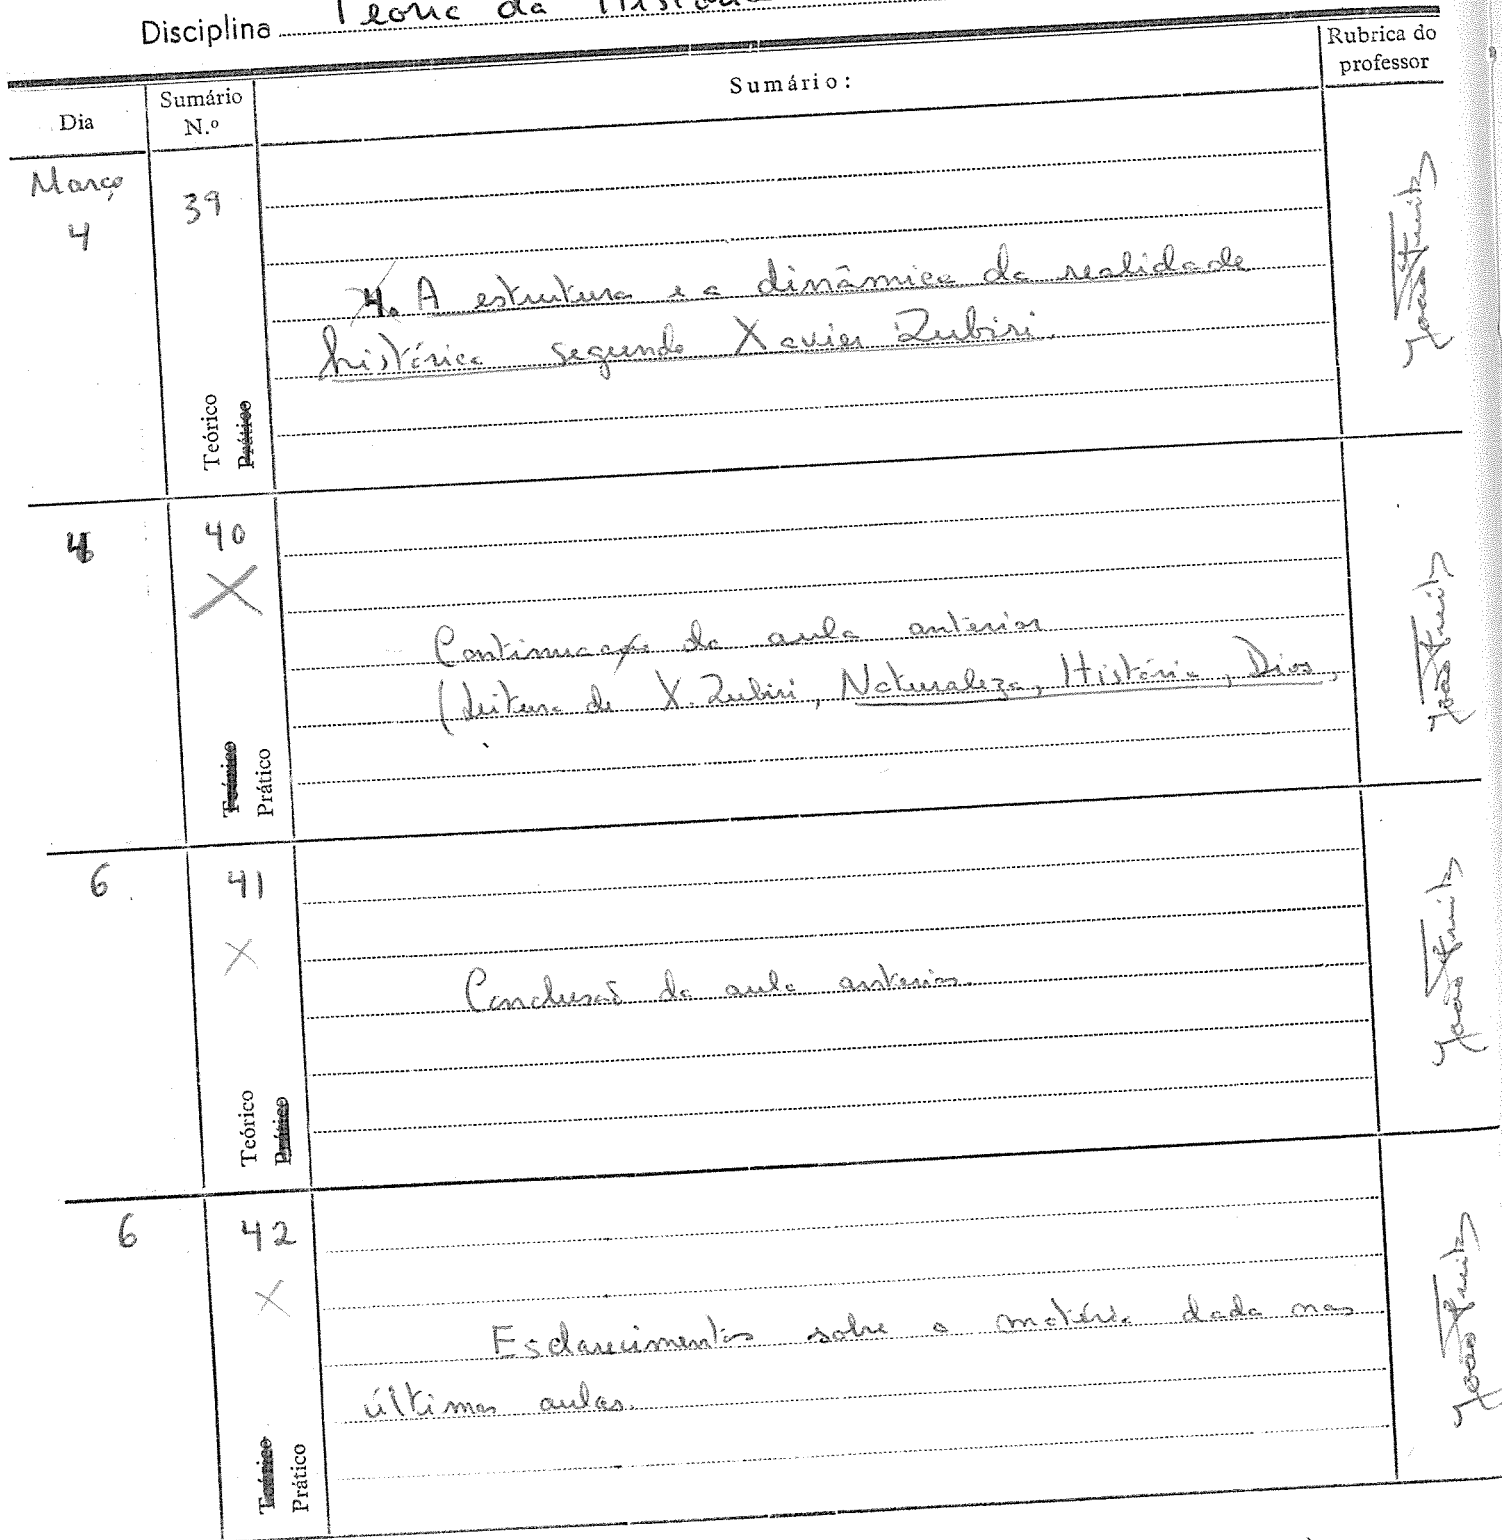 Disciplina Teoria da História
Dia
Sumário N.º
Sumário:
Rubrica do professor
Março
4
39
4. A estrutura e a dinâmica da realidade
histórica segundo Xavier Zubiri.
Teórico
Prático
4
40
Continuação da aula anterior
(Leitura de X. Zubiri, Naturaleza, História, Dios,
Teórico
Prático
6
41
Conclusão da aula anterior.
Teórico
Prático
6
42
Esclarecimentos sobre a matéria dada nas
últimas aulas.
Teórico
Prático